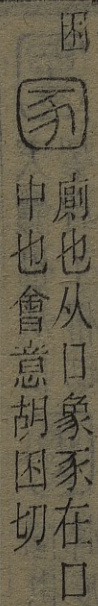 圂
圂
廁也从囗象豕在囗
中也會意胡困切